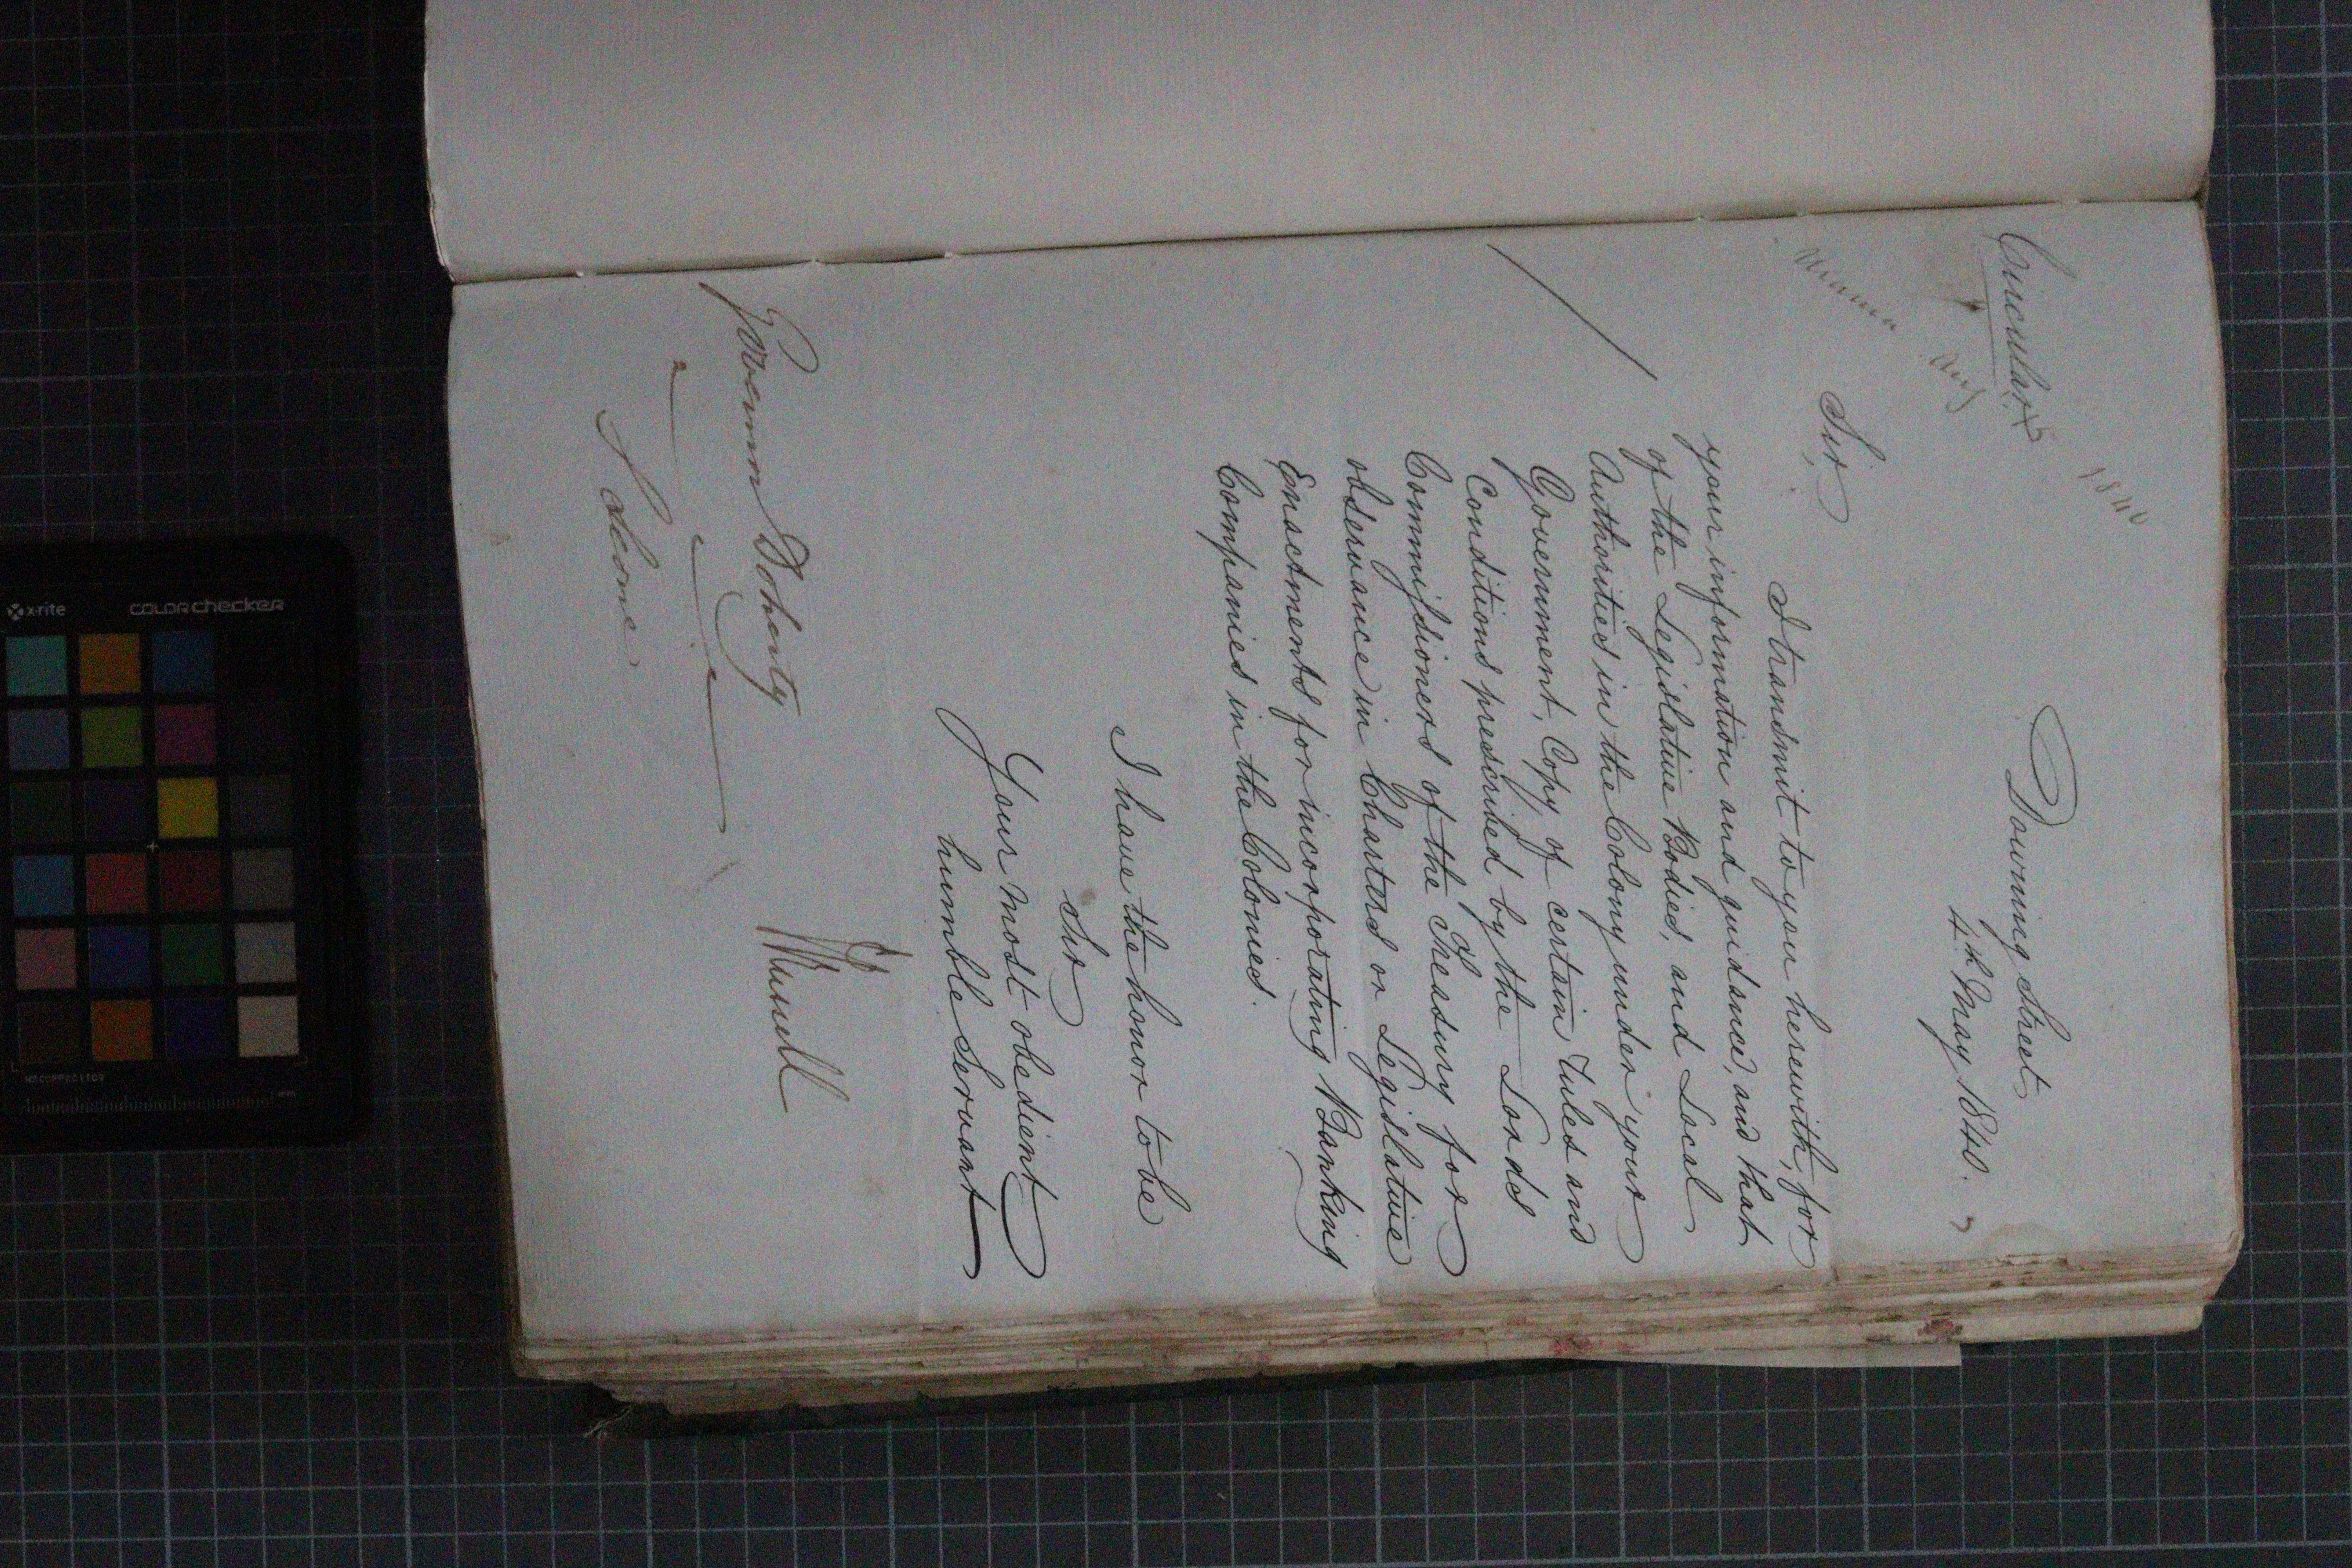 1840
Circular
Downing Street
4th May 1840.
Sir,
I transmit to you herewith, for
your information and guidance, and that
of the Legislative Bodies, and Local
Authorities in the Colony under your
Government, Copy of certain Rules and
Conditions prescribed by the Lords
Commissioners of the Treasury for
observance in Charters or Legislative
Enactments for incorporating Banking
Companies in the Colonies.
I have the honor to be
Sir
Your most obedient
humble Servant
J Russell
Governor Doherty
x-rite
colorchecker